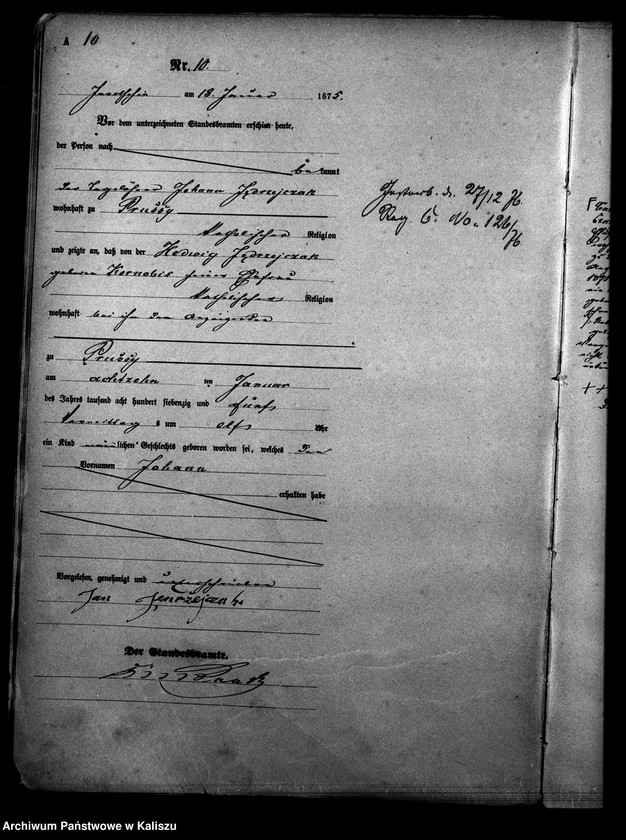 A 10
Nr. 10.
am 18. Januar 1875.
Vor dem unterzeichneten Standesbeamten erschien heute,
der Person nach
bekannt
der Tagelöhner Johann Jędrzejczak
wohnhaft zu Prussy
katholischer Religion
und zeigte an, daß von der Hedwig Jędrzejczak
geborene Kornobis seiner Ehefrau
katholischer Religion
wohnhaft bei ihm dem Anzeigenden
zu Prussy
am achtzehn ten Januar
des Jahres tausend acht hundert siebenzig und fünf
Vormittags um elf Uhr
ein Kind männlichen Geschlechts geboren worden sei, welches den
Vornamen Johann
erhalten habe
Vorgelesen, genehmigt und unterschrieben
Jan
Der Standesbeamte.
Gestorb. d. 27/12 76.
Reg. C. No. 126/76
Archiwum Państwowe w Kaliszu